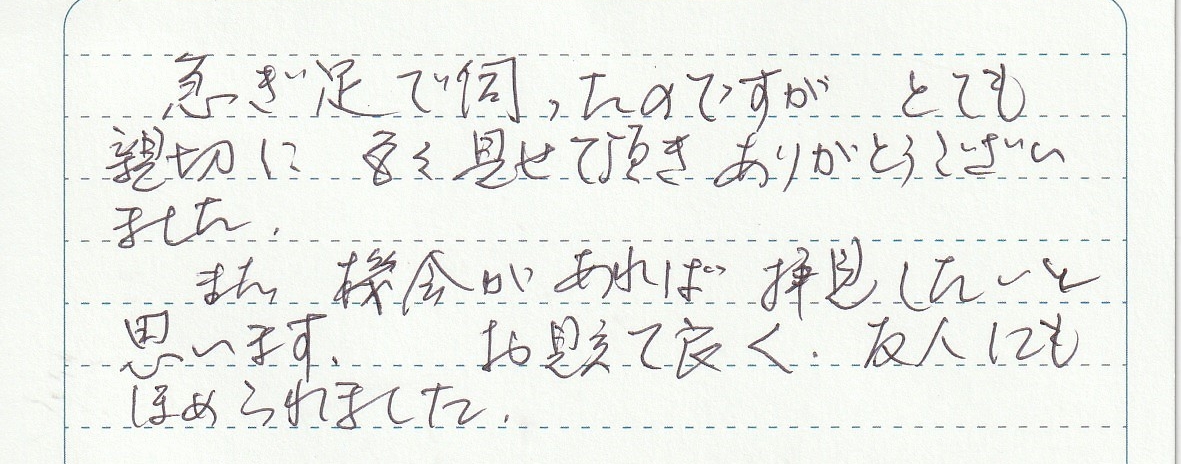 急ぎ足で伺ったのですが とても
親切に 良く見せて頂きありがとうございい
ました.
また 機会があれば 拝見したいと
思います. お見えて良く. 友人にも
ほめられました.